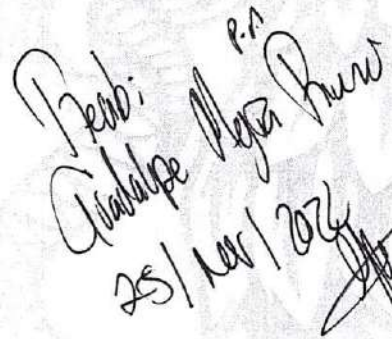 Recibí
P.A
Guadalupe Mejía
25/Nov/202